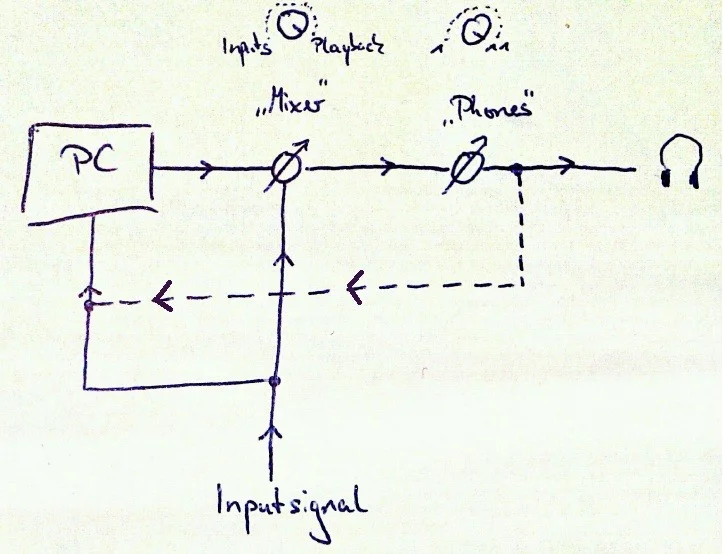 Inputs Playback
1 11
„Mixer“ „Phones“
PC
Inputsignal